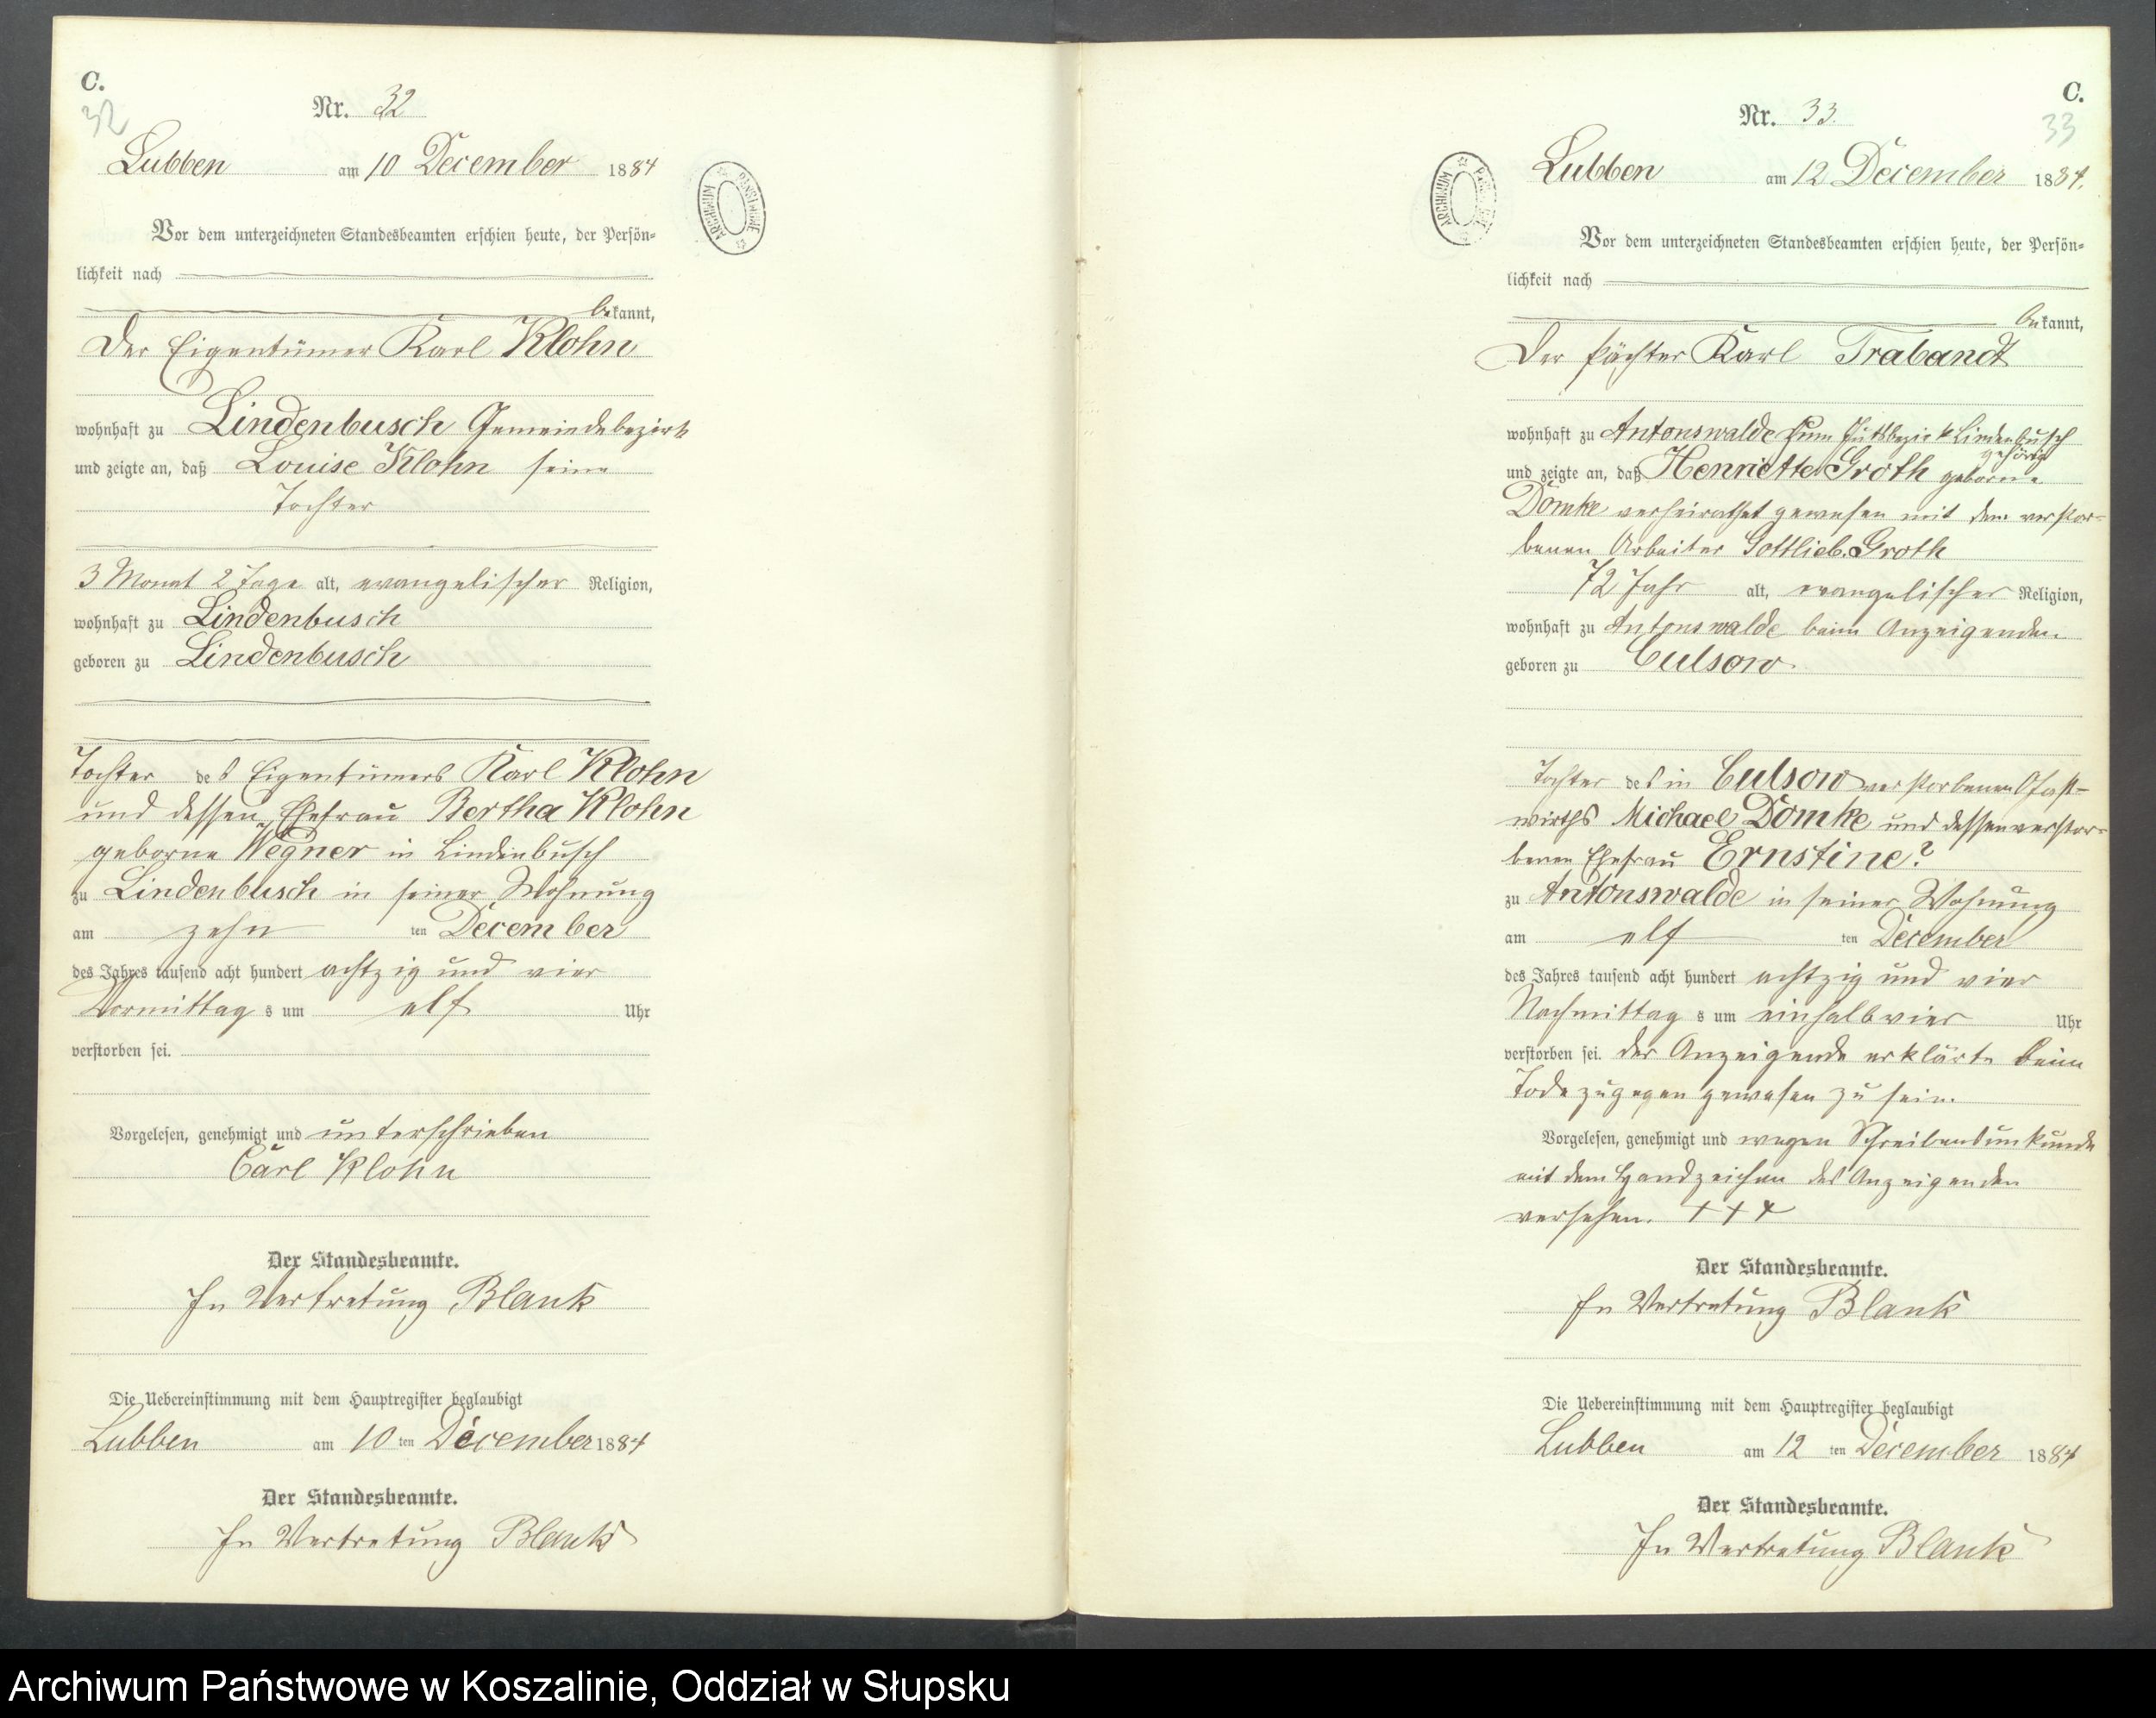 C.
32
Nr. 32
Lubben am 10 December 1884
Vor dem unterzeichneten Standesbeamten erschien heute, der Persön-
lichkeit nach
bekannt,
Der Eigentümer Karl Klohn
wohnhaft zu Lindenbusch Gemeindebezirk
und zeigte an, daß Louise Klohn seine
Tochter
3 Monat 2 Tage alt, evangelischer Religion,
wohnhaft zu Lindenbusch
geboren zu Lindenbusch
Tochter des Eigentümers Karl Klohn
und dessen Ehefrau Bertha Klohn
geborne Wegner in Lindenbusch
zu Lindenbusch in seiner Wohnung
am zehn ten December
des Jahres tausend acht hundert achtzig und vier
Vormittag s um elf Uhr
verstorben sei.
Vorgelesen, genehmigt und unterschrieben
Carl Klohn
Der Standesbeamte.
In Vertretung Blank
Die Uebereinstimmung mit dem Hauptregister beglaubigt
Lubben am 10 ten December 1884
Der Standesbeamte.
In Vertretung Blank
ARCHIWUM PAŃSTWOWE
C.
33
Nr. 33.
Lubben am 12 December 1884.
ARCHIWUM
Vor dem unterzeichneten Standesbeamten erschien heute, der Persön-
lichkeit nach
bekannt,
Der Pächter Karl Trabandt
wohnhaft zu Antonswalde zum Gutsbezirk Lindenbusch
gehörig
und zeigte an, daß Henriette Groth geborne
Domke verheirathet gewesen mit dem verstor-
benen Arbeiter Gottlieb Groth
72 Jahr alt, evangelischer Religion,
wohnhaft zu Antonswalde beim Anzeigenden
geboren zu Culsow.
Tochter des in Culsow verstorbenen Gast-
wirths Michael Domke und dessen verstor-
benen Ehefrau Ernstine?
zu Antonswalde in seiner Wohnung
am elf ten December
des Jahres tausend acht hundert achtzig und vier
Nachmittag s um einhalbvier Uhr
verstorben sei. der Anzeigende erklärte beim
Tode zugegen gewesen zu sein.
Vorgelesen, genehmigt und wegen Schreibensunkunde
mit dem Handzeichen des Anzeigenden
versehen. +++
Der Standesbeamte.
In Vertretung Blank
Die Uebereinstimmung mit dem Hauptregister beglaubigt
Lubben am 12 ten December 1884
Der Standesbeamte.
In Vertretung Blank
Archiwum Państwowe w Koszalinie, Oddział w Słupsku